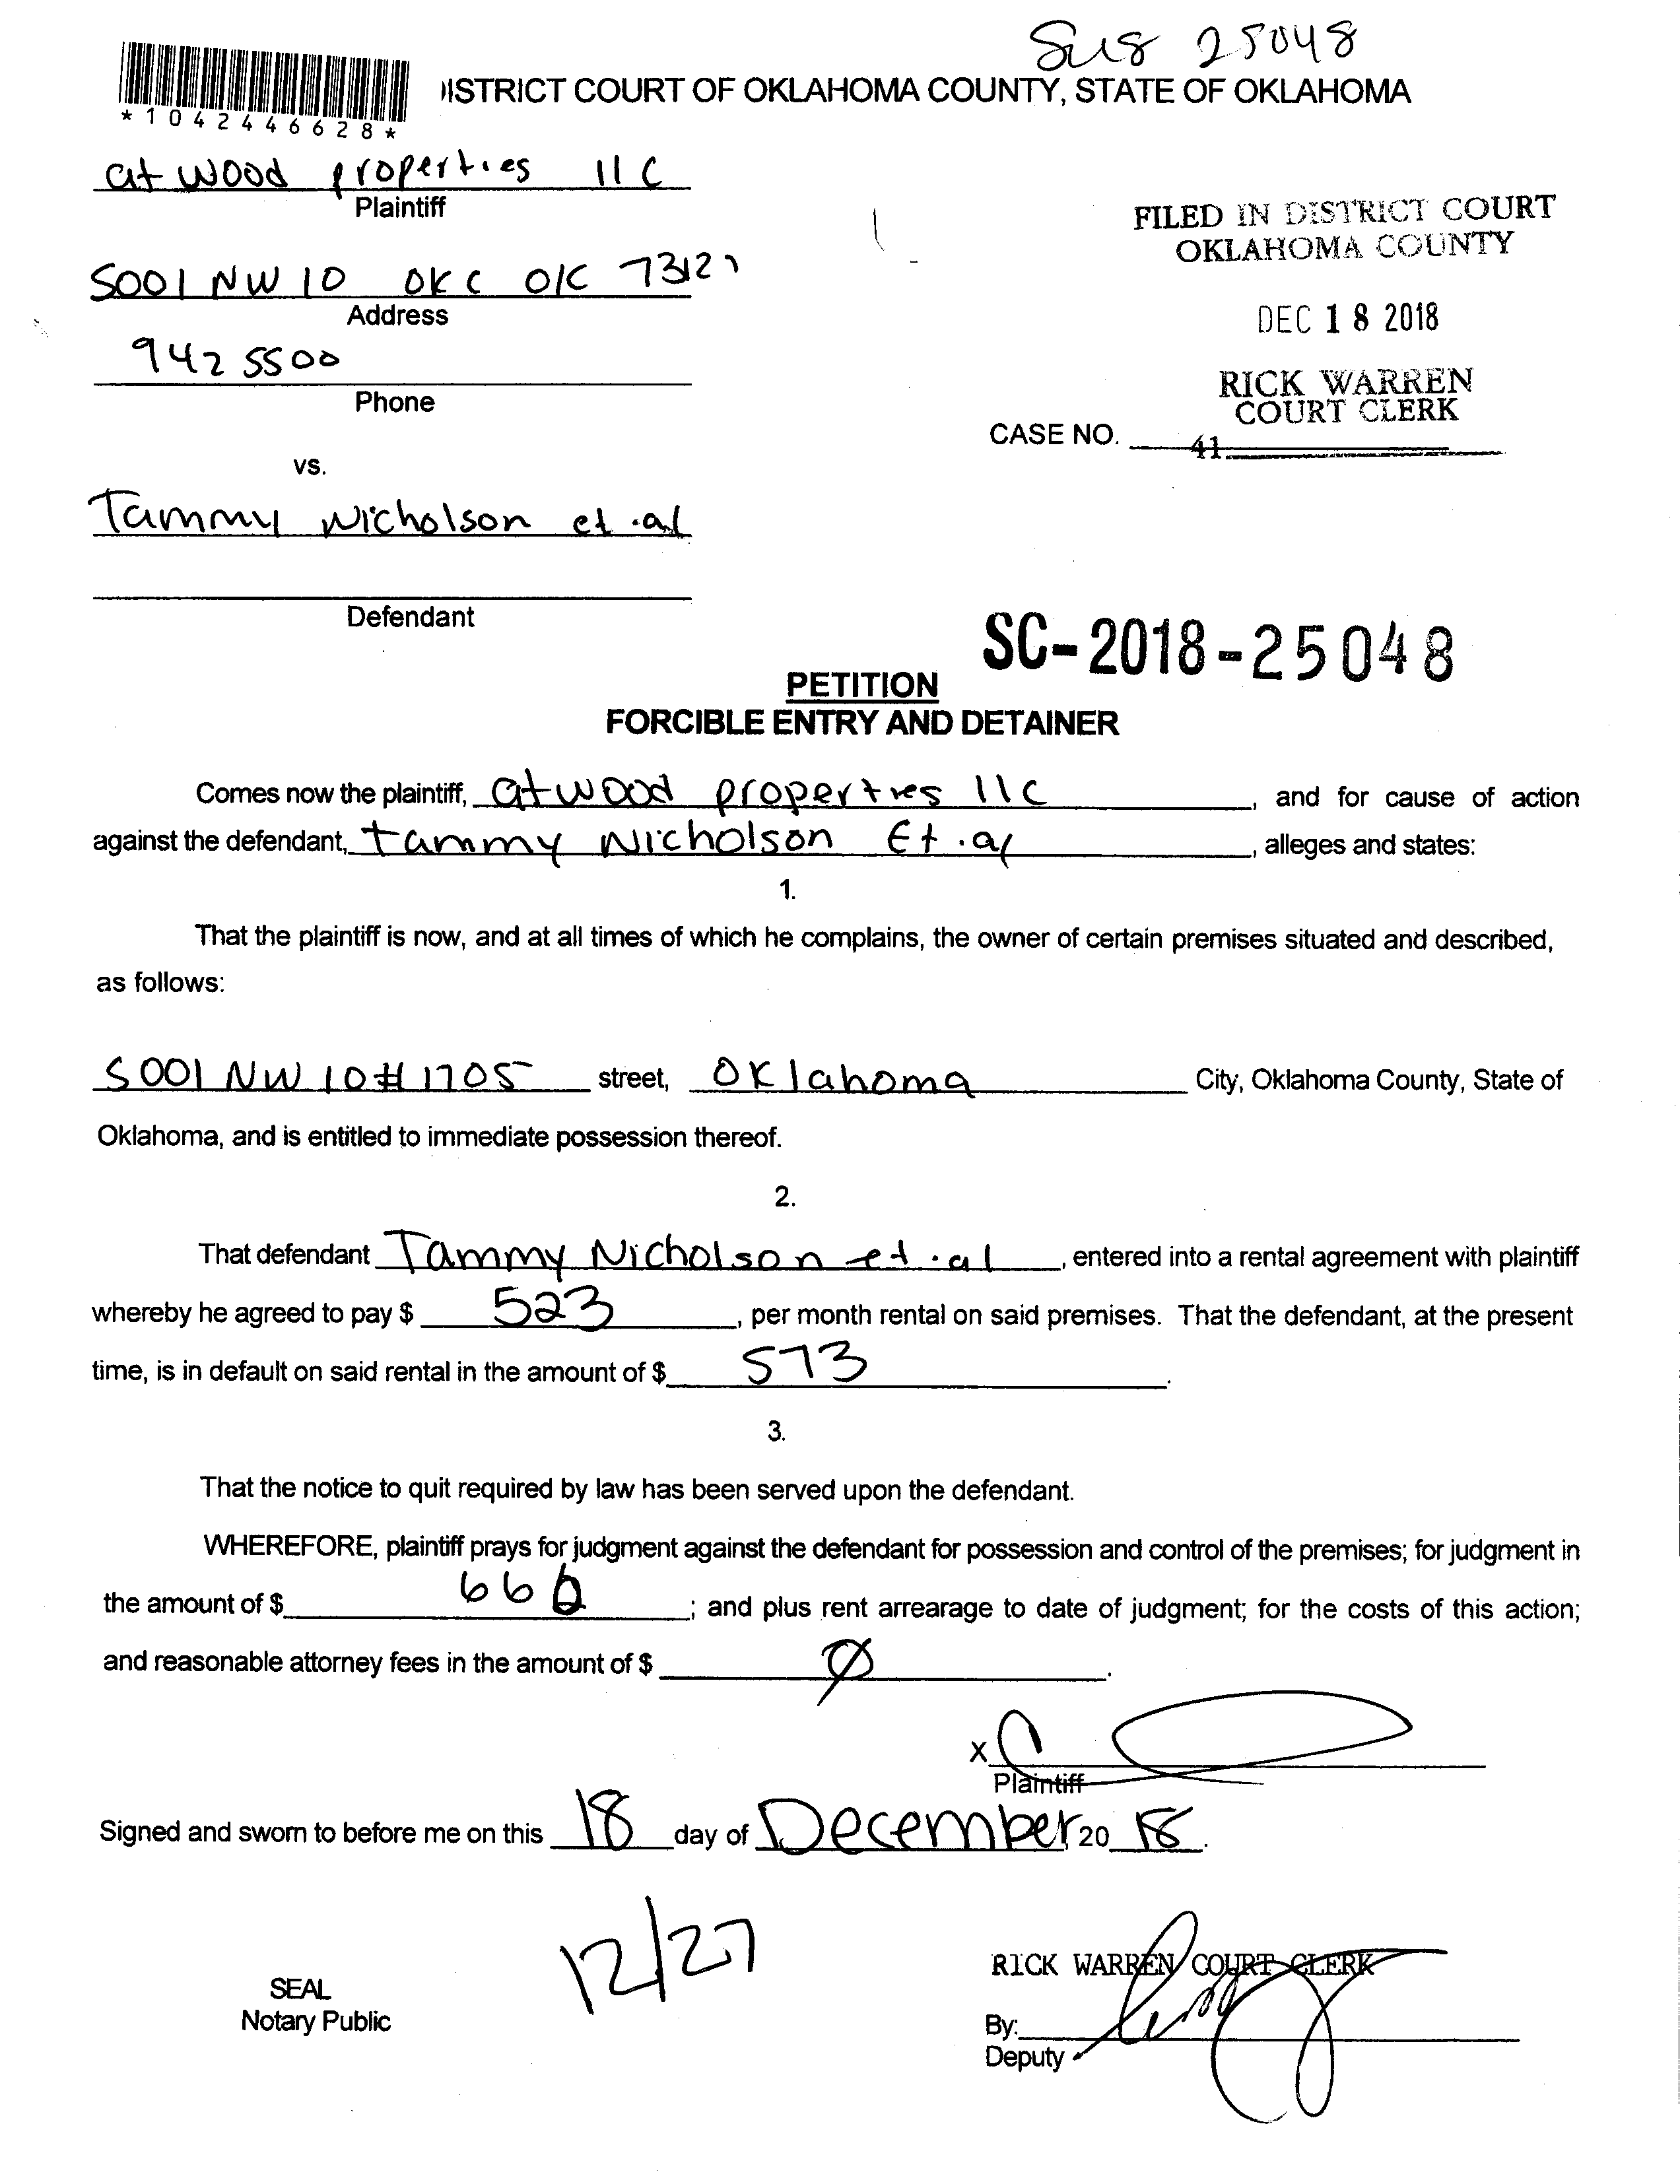 25048
*1042446628*
ISTRICT COURT OF OKLAHOMA COUNTY, STATE OF OKLAHOMA
atwood properties llc
Plaintiff
FILED IN DISTRICT COURT
OKLAHOMA COUNTY
5001 NW 10 OKC OK 73127
Address
DEC 18 2018
942 5500
Phone
RICK WARREN
COURT CLERK
CASE NO. 41
vs.
Tammy Nicholson et.al
Defendant
SC-2018-25048
PETITION
FORCIBLE ENTRY AND DETAINER
Comes now the plaintiff, atwood properties llc, and for cause of action
against the defendant, tammy Nicholson Et.al, alleges and states:
1.
That the plaintiff is now, and at all times of which he complains, the owner of certain premises situated and described,
as follows:
5001 NW 10 # 1705 street, Oklahoma City, Oklahoma County, State of
Oklahoma, and is entitled to immediate possession thereof.
2.
That defendant Tammy Nicholson et.al, entered into a rental agreement with plaintiff
whereby he agreed to pay $ 523, per month rental on said premises. That the defendant, at the present
time, is in default on said rental in the amount of $ 573.
3.
That the notice to quit required by law has been served upon the defendant.
WHEREFORE, plaintiff prays for judgment against the defendant for possession and control of the premises; for judgment in
the amount of $ 666; and plus rent arrearage to date of judgment; for the costs of this action;
and reasonable attorney fees in the amount of $ Ø.
X
Plaintiff
Signed and sworn to before me on this 18 day of December, 20 18.
12/27
SEAL
Notary Public
RICK WARREN COURT CLERK
By:
Deputy